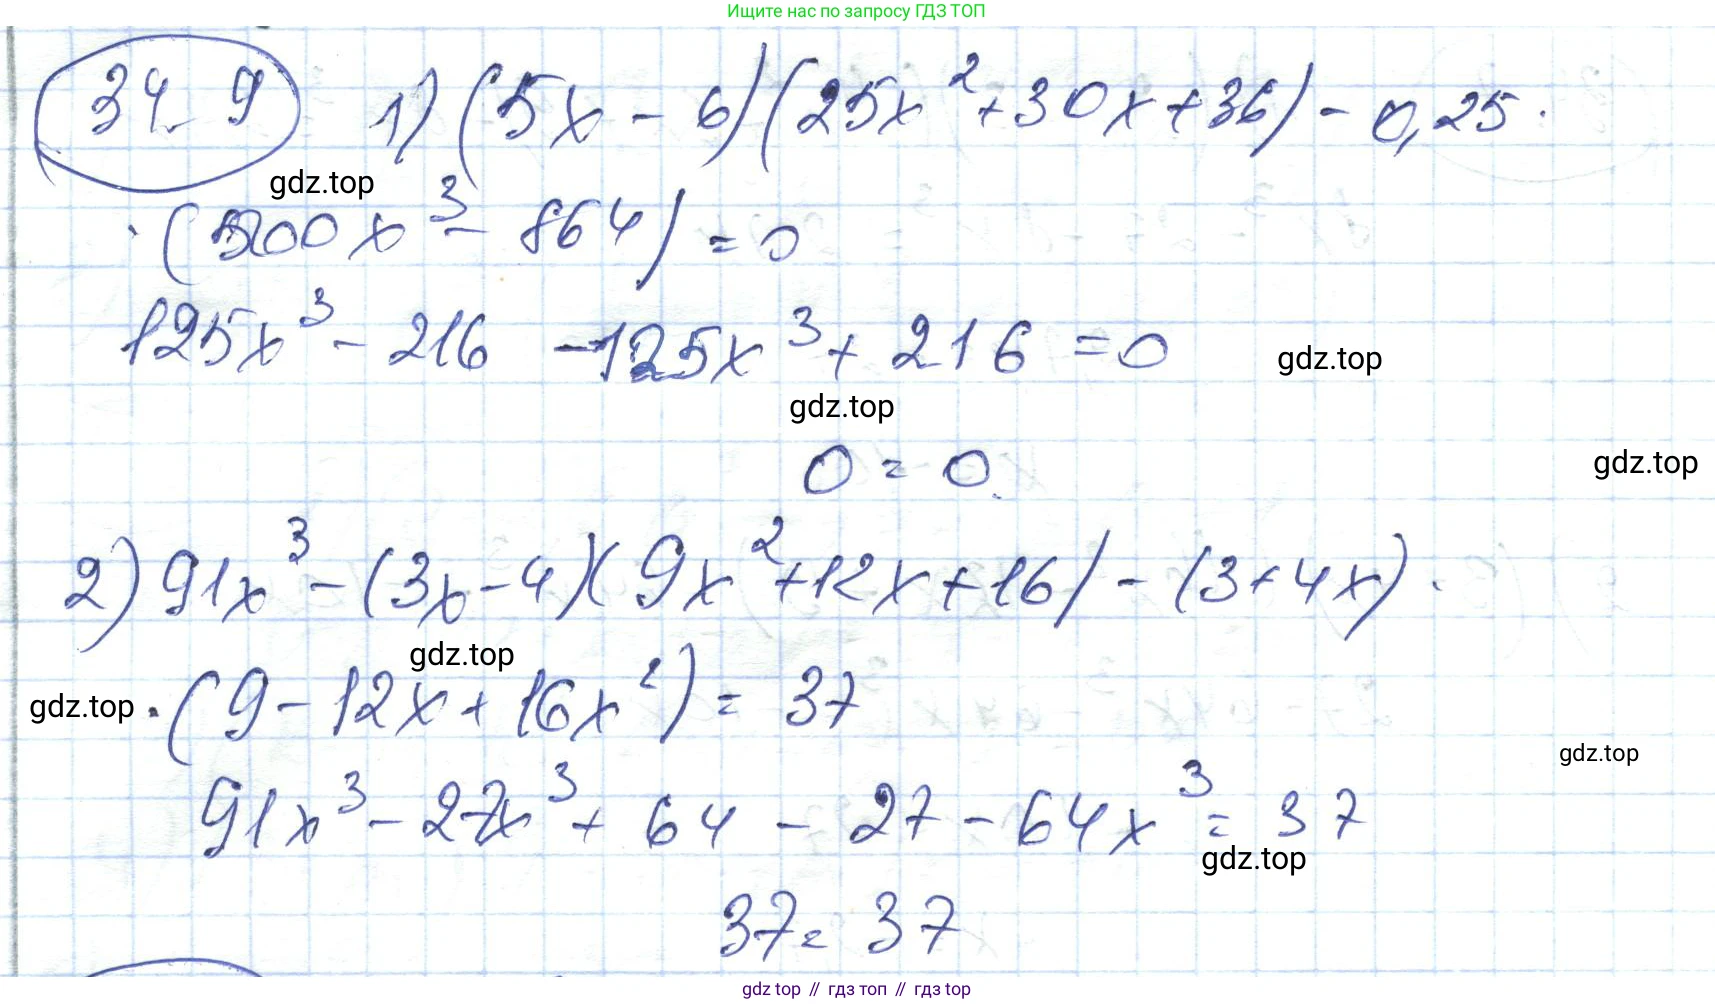 Ищите нас по запросу ГДЗ ТОП
34.9 1) (5x - 6)(25x² + 30x + 36) - 0,25 ·
gdz.top
· (500x³ - 864) = 0
125x³ - 216 - 125x³ + 216 = 0
gdz.top
gdz.top
0 = 0.
gdz.top
2) 91x³ - (3x - 4)(9x² + 12x + 16) - (3 + 4x) ·
gdz.top
gdz.top · (9 - 12x + 16x²) = 37
gdz.top
91x³ - 27x³ + 64 - 27 - 64x³ = 37
gdz.top
37 = 37
gdz top // гдз топ // гдз top